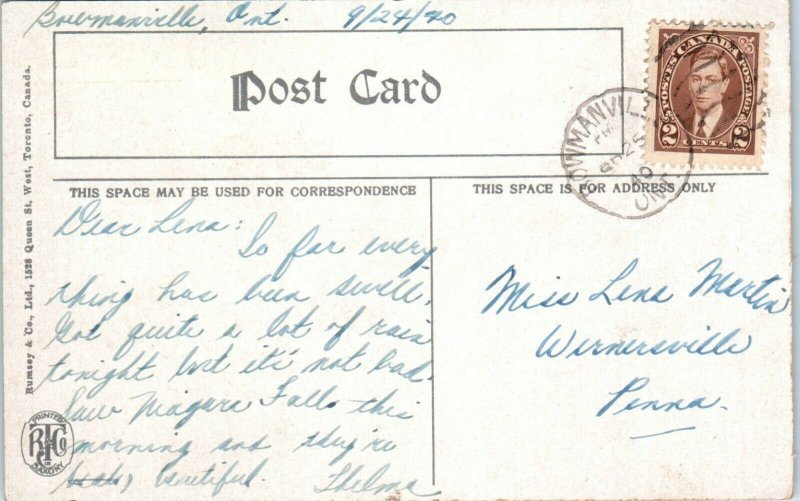 Bowmanville, Ont. 9/24/40
Post Card
POSTES CANADA POSTAGE
2 2
CENTS
BOWMANVILLE
PM
SP 25
40
ONT.
Rumsey & Co., Ltd., 1528 Queen St. West, Toronto, Canada.
THIS SPACE MAY BE USED FOR CORRESPONDENCE
THIS SPACE IS FOR ADDRESS ONLY
Dear Lena:
So far every
thing has been swell.
Got quite a lot of rain
tonight but it's not bad.
Saw Niagara Falls this
morning and they're
beautiful.
Thelma
PRINTED
R & Co
IN
SAXONY
Miss Lena Martin
Wernersville
Penna.